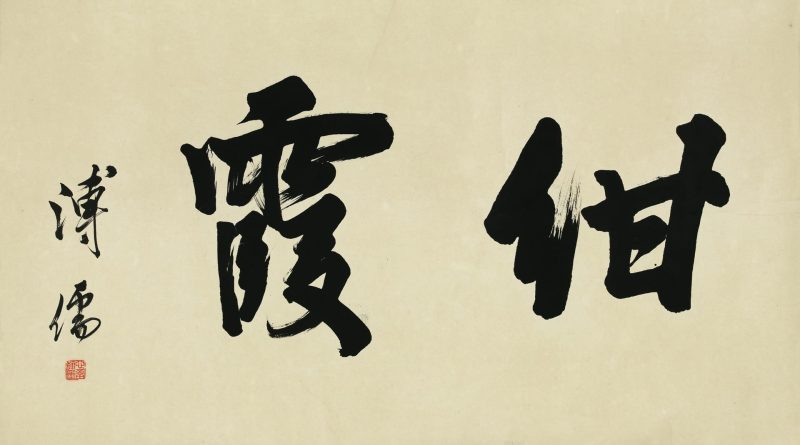 紺霞
溥儒